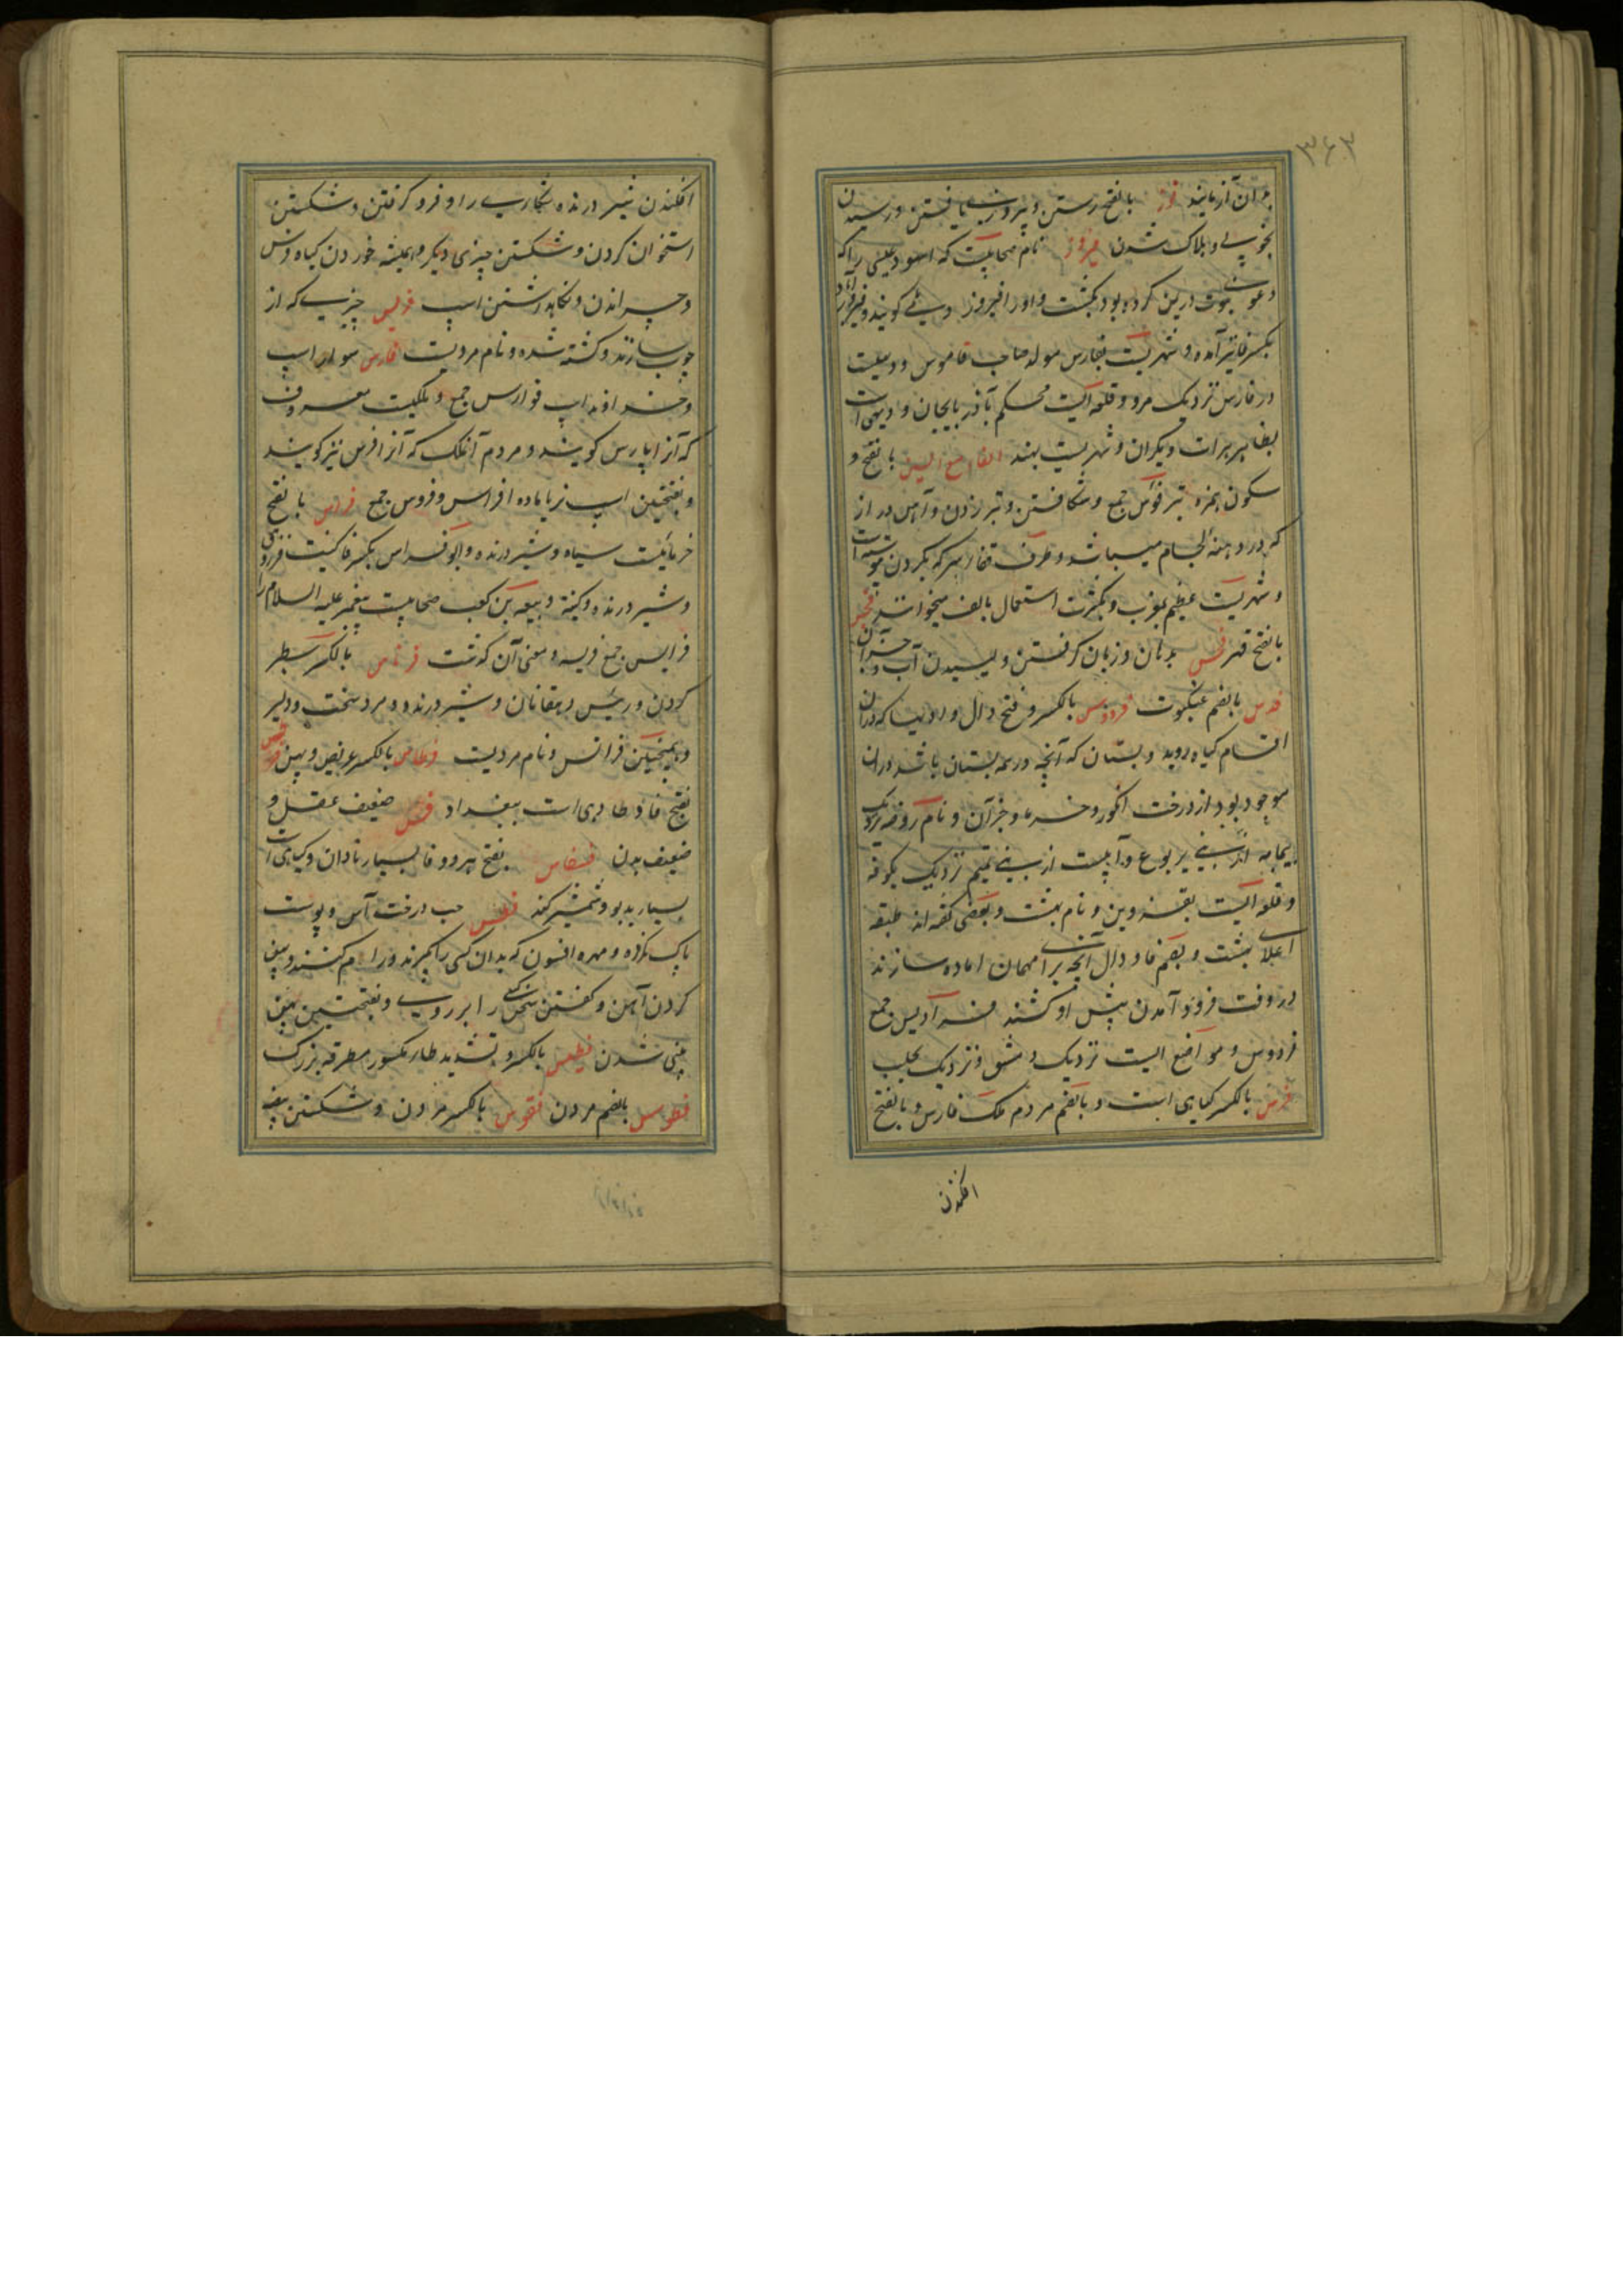 ۳۶۳
بدان آزمایند فوز بالفتح رستن و پیروزی یافتن و رسیدن
بخوبی و هلاک شدن فیروز نام صحابیست که اسود عنسی را که
دعوی نبوت در یمن کرده بود بکشت و او را فیروز دیلمی گویند و فیروزآباد
بکسر فا نیز آمده و شهریست بفارس مولد صاحب قاموس و دهیست
در فارس نزدیک مرد و قلعه ایست محکم بآذربایجان و دیهی است
بظاهر هرات و یکران و شهریست بهند الفاء مع السین بالفتح و
سکون همزه تبر فؤس جمع و شکافتن و تبر زدن و آهن دراز
که در دهنه لجام میباشد و طرف قفا سر که بگردن پیوسته است
و شهریست عظیم بمغرب و بکثرت استعمال بالف میخوانند فجس
بالفتح قهر فحس بدنان و زبان گرفتن و لیسیدن آب و جز آن
فدس بالضم عنکبوت فردوس بالکسر و فتح دال وادیها که در آن
اقسام گیاه روید و بستان که آنچه در همه بستان باشد در آن
موجود بود از درخت انگور و خرما و جز آن و نام روضه نزدیک
یمامه از بنی یربوع و آبیست از بنی تمیم نزدیک بکوفه
و قلعه ایست بقزوین و نام بهشت و بعضی گفته اند طبقه
اعلای بهشت و بضم فا و دال آنچه برای مهمان اماده سازند
در وقت فرود آمدن پیش او کشند فرادیس جمع
فردوس و مواضع ایست نزدیک دمشق و نزدیک بحلب
فرس بالکسر گیاهی است و بالضم مردم ملک فارس و بالفتح
افکندن
افکندن شیر درنده شکاری را و فرو گرفتن و شکستن
استخوان گردن و شکستن چیزی دیگر و همیشه خوردن گیاه فرس
و چرانیدن و نگاه داشتن اسپ فریس چیزی که از
چوب سازند و کشته شده و نام مردیست فارس سوار اسپ
و خداوند اسپ فوارس جمع و ملکیست معروف
که آنرا پارس گویند و مردم آنملک که آنرا فرس نیز گویند
و بفتحتین اسپ نر یا ماده افراس و فروس جمع فراس بالفتح
خرمائیست سیاه و شیر درنده و ابو فراس بکسر فا کنیت فرزدق
و شیر درنده و کنیة ربیعه بن کعب صحابیست پیغمبر علیه السلام را
فرایس جمع فریسه و معنی آن گذشت فرناس بالکسر سطبر
گردن و رئیس دهقانان و شیر درنده و مرد سخت و دلیر
و همچنین فرانس و نام مردیست فرطاس بالکسر عریض و پهن
بفتح فا و طا دهی است ببغداد فسل ضعیف عقل و
ضعیف بدن فسفاس بفتح هر دو فا بسیار نادان و گیاهی است
بسیار بدبو و شمشیر کند فطس حب درخت آس و پوست
پاک نکرده و مهره افسون که بدان کسی را بگیرند و رام کنند و پهن
کردن آهن و گفتن سخن کسی را بر روی و بفتحتین پهن
بینی شدن فطیس بالکسر و تشدید طاء مکسور مطرقه بزرگ
فطوس بالضم مردن فقوس بالکسر مردن و شکستن بیضه